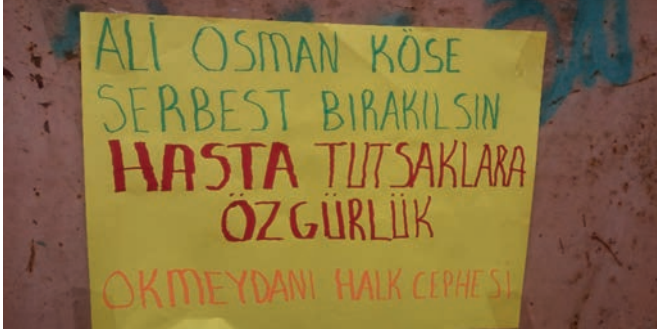 ALİ OSMAN KÖSE
SERBEST BIRAKILSIN
HASTA TUTSAKLARA
ÖZGÜRLÜK
OKMEYDANI HALK CEPHESİ